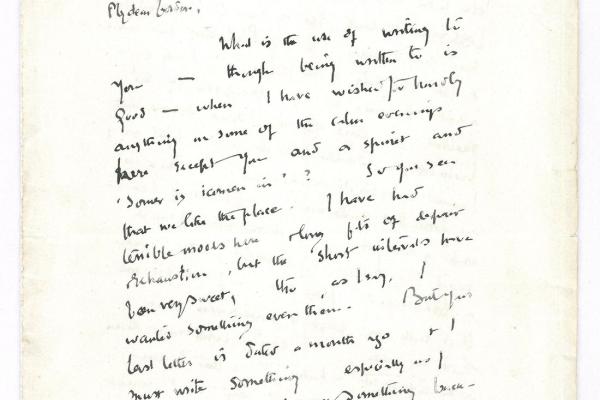 My dear Gordon,
What is the use of writing to
you — though being written to is
good — when I have wished for hardly
anything on some of the calm evenings
here except you and a spinet and
'Somer is icumen in'? So you see
that we like the place. I have had
terrible moods here & long fits of despair
exhaustion, but the short intervals have
been very sweet, tho' as I say, I
wanted something even then. But your
last letter is dated a month ago & I
must write something especially as I
something